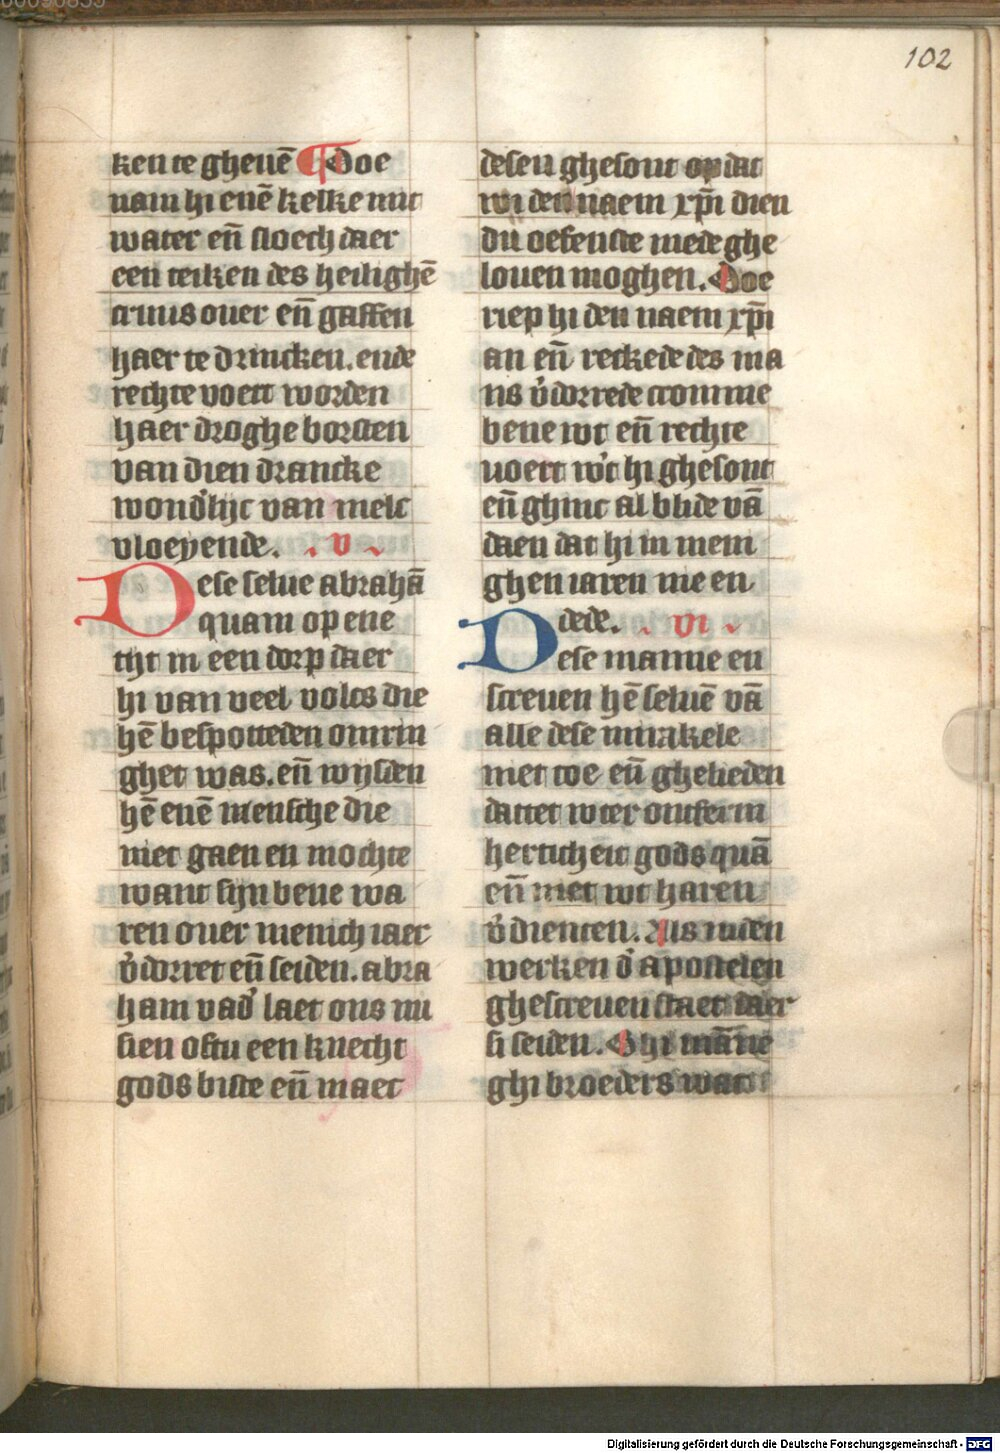 102
ken te gheuē ¶ Doe
nam hi enē kelke mit
water eñ sloech daer
een teiken des heilighē
cruus ouer eñ gaffen
haer te drincken. ende
rechte voert worden
haer droghe borsten
van dien drancke
wond'lijc van melc
vloeyende. . v .
Dese selue abrahā
quam op ene
tijt in een dorp daer
hi van veel volcs die
hē bespotteden omrin
ghet was. eñ wijsden
hē enē mensche die
niet gaen en mochte
want sijn bene wa
ren ouer menich iaer
v'dorret eñ seiden. abra
ham vad' laet ons nu
sien oftu een knecht
gods biste eñ maec
desen ghesont op dat
wi den naem xp̄i dien
du oefenste mede ghe
loven moghen. Doe
riep hi den naem xp̄i
an eñ reckede des ma
ns v'dorrede cromme
bene wt eñ rechte
uoert w't hi ghesont
eñ ghinc al blide vā
daen dat hi in meni
ghen iaren nie en
dede. . vi .
Dese manne en
screuen hē seluē vā
alle dese mirakele
niet toe eñ ghelieden
dattet wter ontferm
herticheit gods quā
eñ niet wt haren
v'dienten. Als inden
werken d' apostelen
ghescreuen staet daer
si seiden. O ghi māne
ghi broeders wat
Digitalisierung gefördert durch die Deutsche Forschungsgemeinschaft - DFG